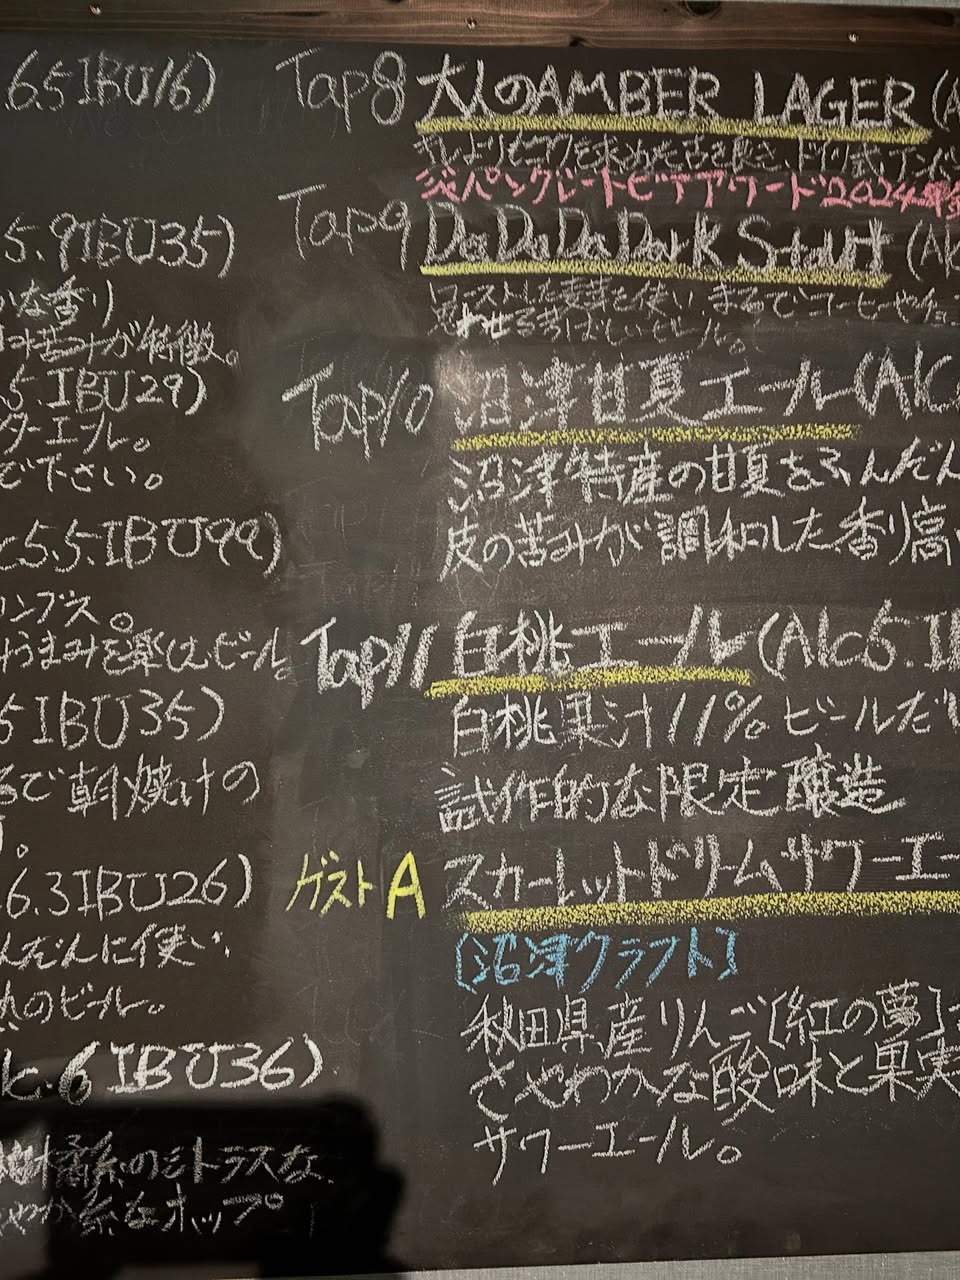 .6.5 IBU16)
5.9 IBU35)
な香り
苦みが特徴。
5. IBU29)
ターエール。
で下さい。
c5.5. IBU99)
うまみを楽しむビール。
5 IBU35)
るで朝焼けの
。
6.3 IBU26)
んだんに使い
のビール。
lc.6 IBU36)
柑橘系のシトラスな、
ホップ
Tap8 大人のAMBER LAGER (A
ジャパングレートビアアワード2024年
Tap9 DaDaDaDark Stout (Alc
ローストした麦芽を使い、まるでコーヒーやチョ
思わせる香ばしいビール。
Tap10 沼津甘夏エール (Alc.
沼津特産の甘夏をふんだん
皮の苦みが調和した、香り高
Tap11 白桃エール (Alc5. I
白桃果汁11% ビールだ
試作的な限定醸造
ゲストA スカーレットドリームサワーエー
[沼津クラフト]
秋田県産りんご[紅の夢]
さわやかな酸味と果実
サワーエール。